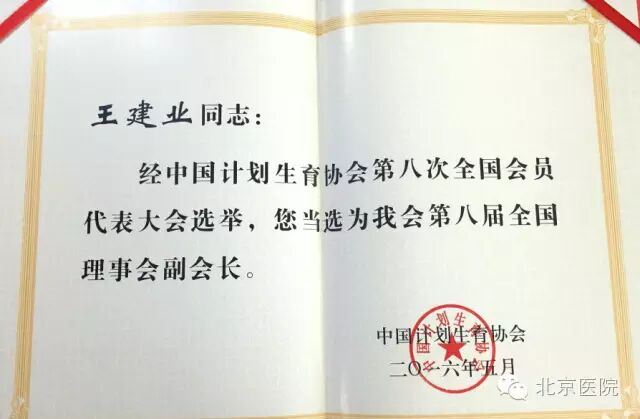 王建业同志：
经中国计划生育协会第八次全国会员
代表大会选举，您当选为我会第八届全国
理事会副会长。
中国计划生育协会
二〇一六年五月
中国计划生育协会
北京医院